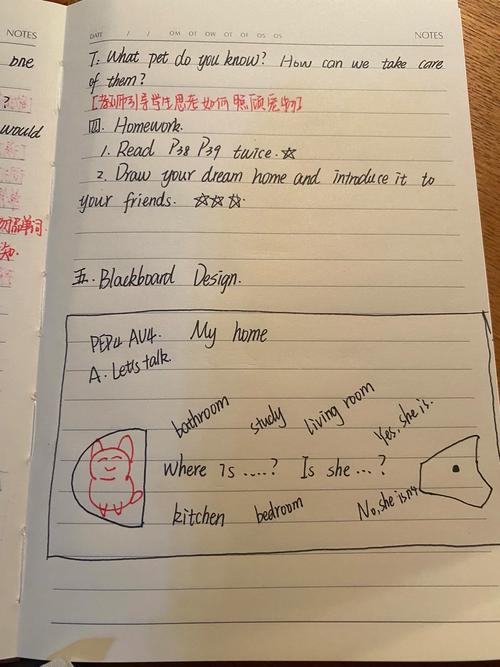 NOTES
one
?
would
DATE / / MO TU WE TH FR SA SU
NOTES
T: What pet do you know? How can we take care
of them?
[教师引导学生思考如何照顾宠物]
Ⅲ. Homework.
1. Read P38 P39 twice. ☆
2. Draw your dream home and introduce it to
your friends. ☆☆☆
五. Blackboard Design.
PEP4 AU4. My home
A. Let's talk.
bathroom study living room
Yes, she is.
Where is ....? Is she ...?
kitchen bedroom
No, she isn't